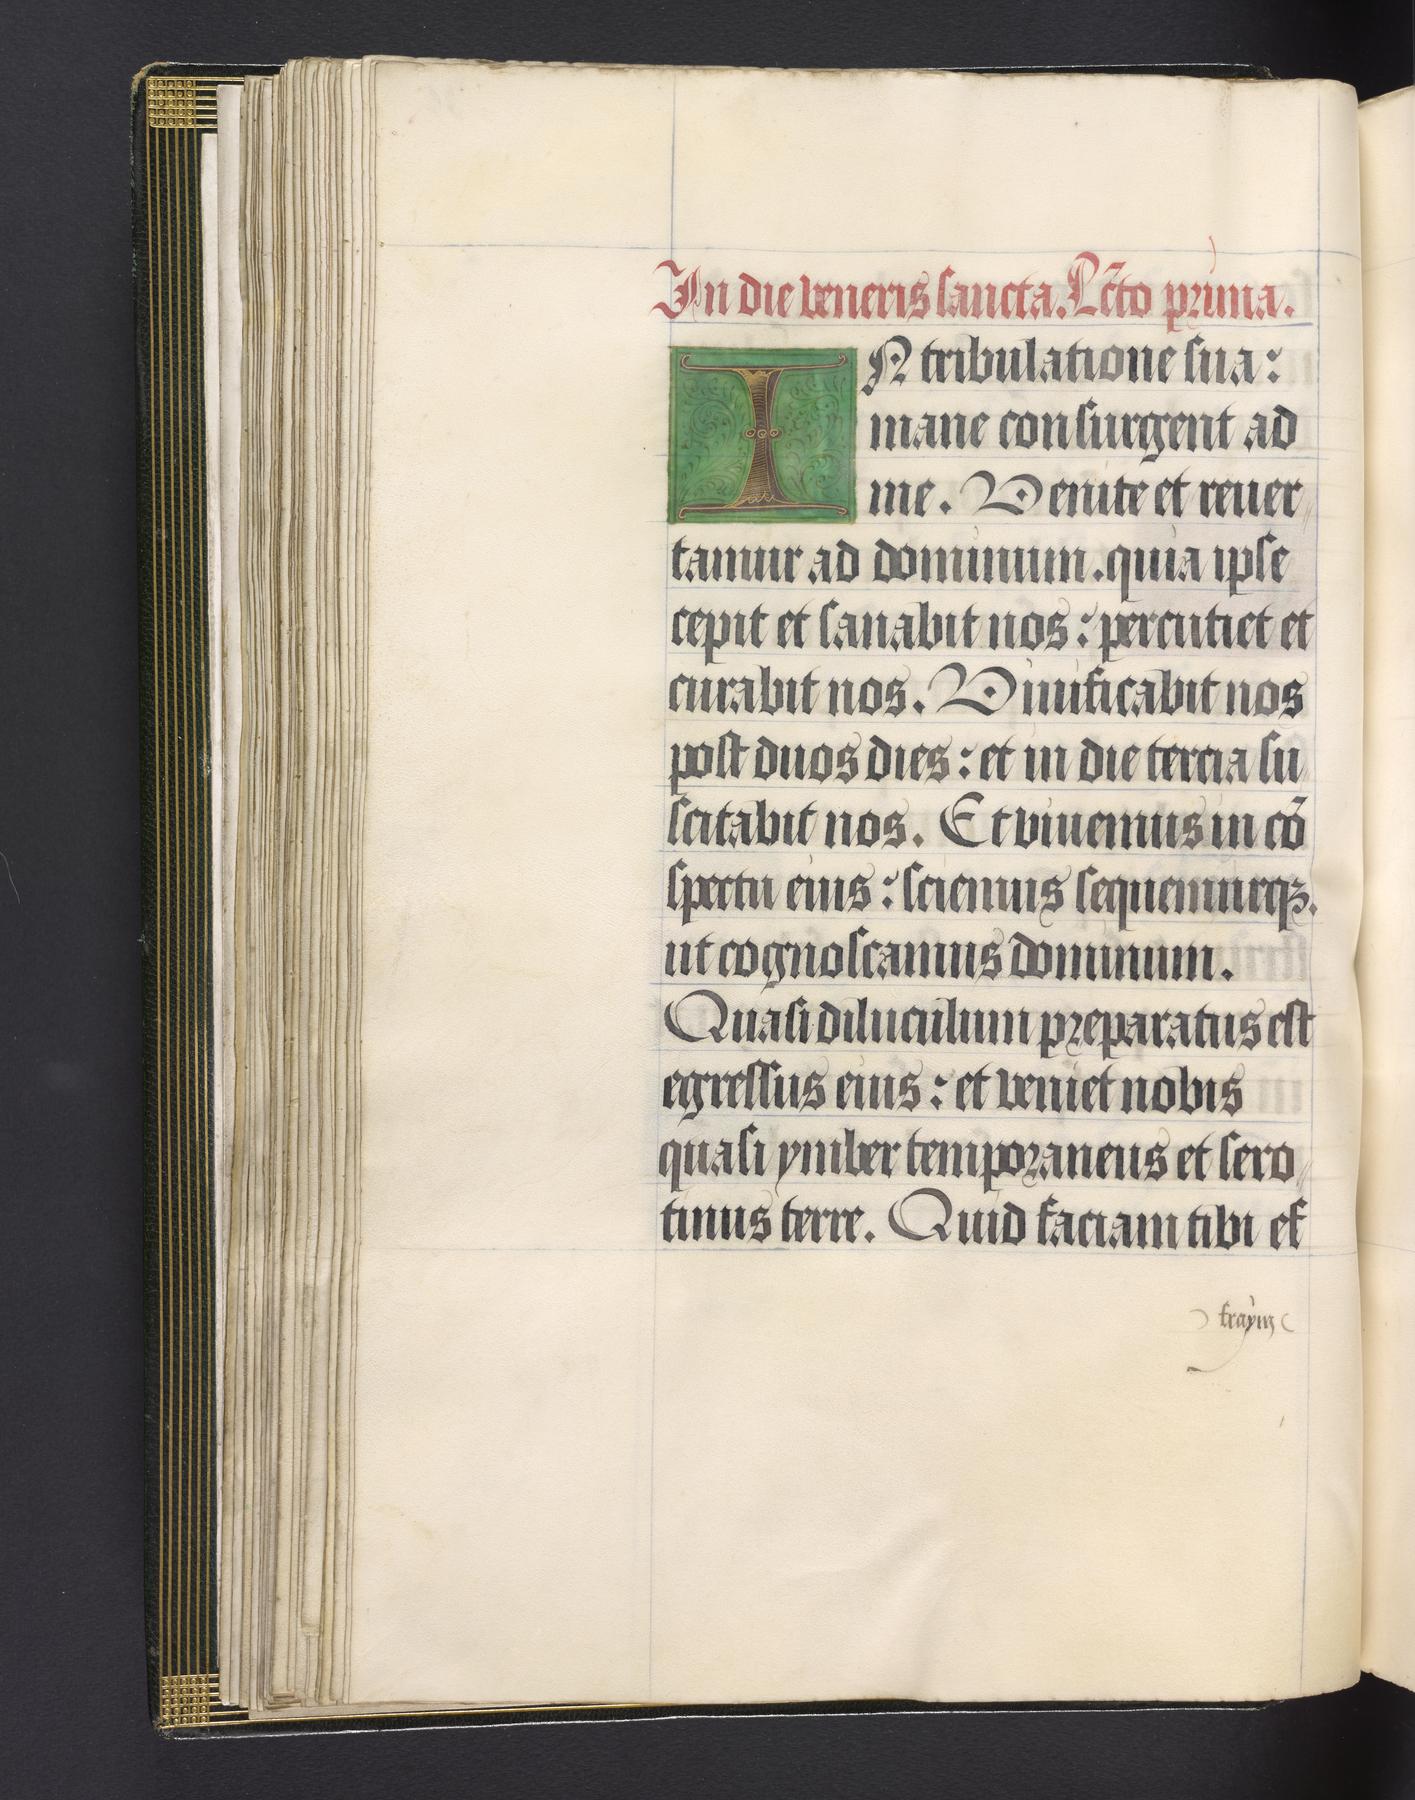 In die veneris sancta. Lc̄to prima.
IN tribulatione sua:
mane consurgent ad
me. Venite et reuer
tamur ad dominum. quia ipse
cepit et sanabit nos: percutiet et
curabit nos. Viuificabit nos
post duos dies: et in die tercia su
scitabit nos. Et viuemus in cō
spectu eius: sciemus sequemurqꝫ.
ut cognoscamus dominum.
Quasi diluculum preparatus est
egressus eius: et veniet nobis
quasi ymber temporaneus et sero
tinus terre. Quid faciam tibi ef
fraym